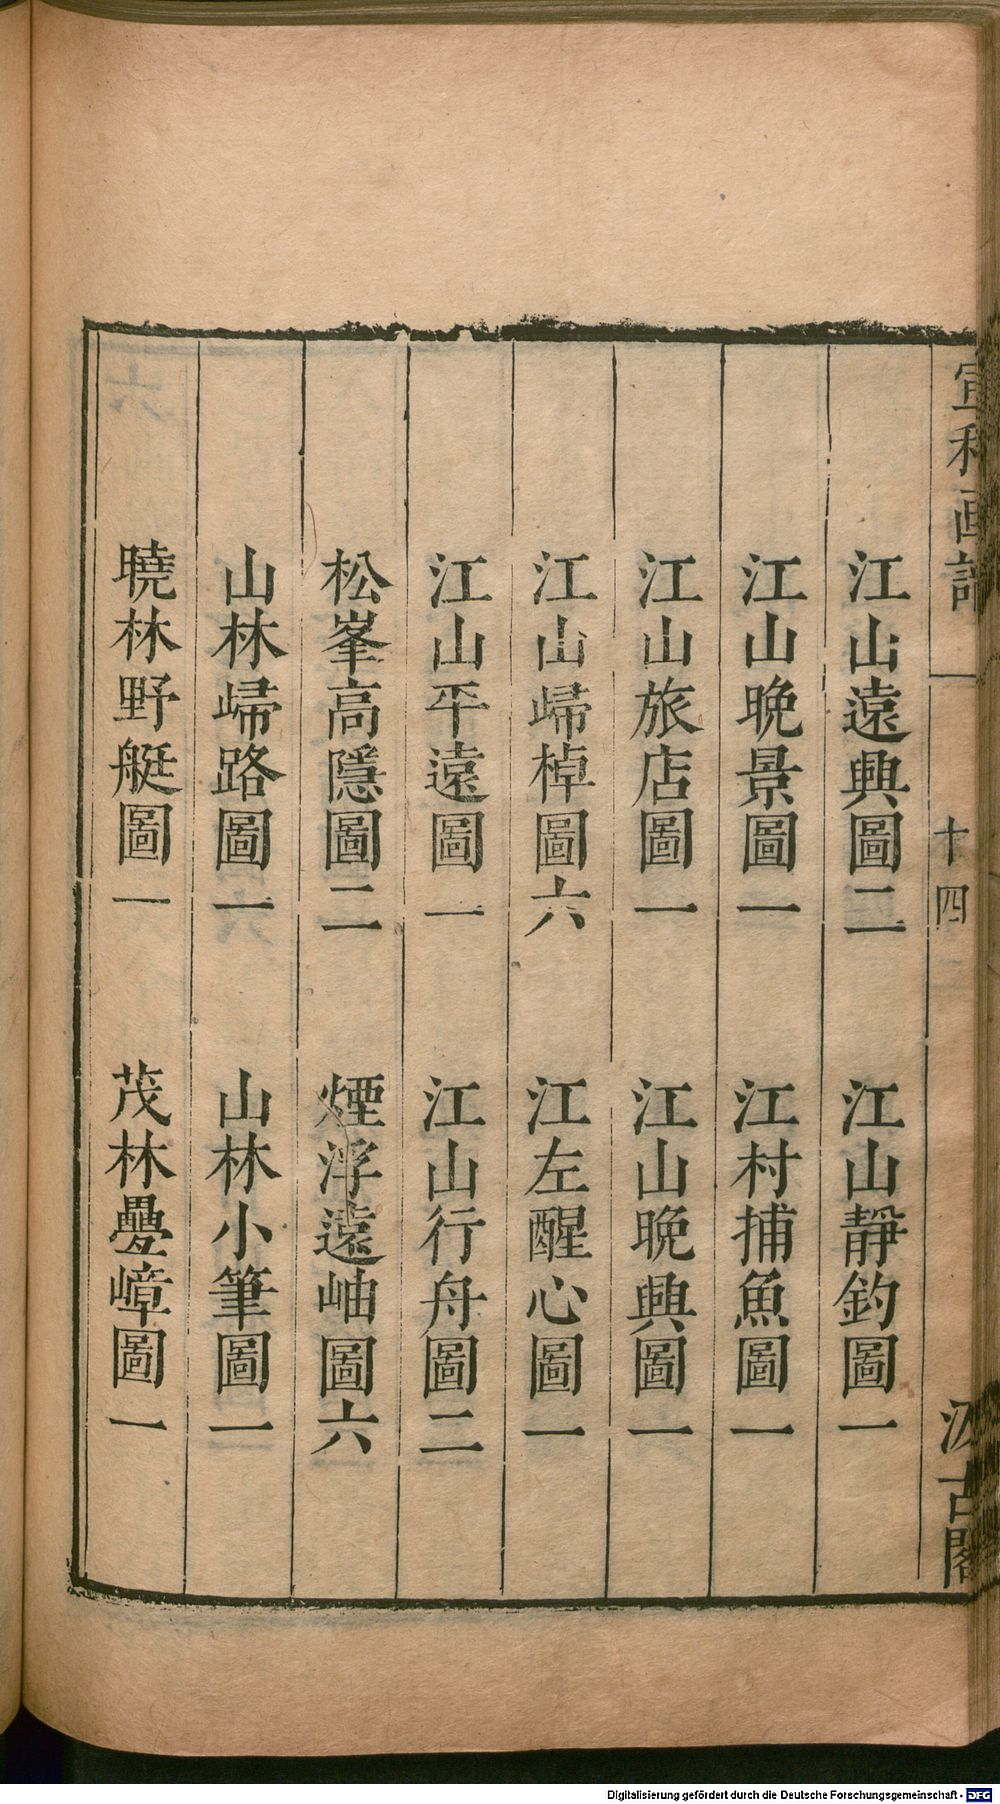 宣和画譜
十四
汲古閣
江山遠興圖二　江山靜釣圖一
江山晚景圖一　江村捕魚圖一
江山旅店圖一　江山晚興圖一
江山歸棹圖六　江左醒心圖一
江山平遠圖一　江山行舟圖二
松峯高隱圖二　煙浮遠岫圖六
山林歸路圖一　山林小筆圖一
曉林野艇圖一　茂林疊嶂圖一
Digitalisierung gefördert durch die Deutsche Forschungsgemeinschaft - DFG